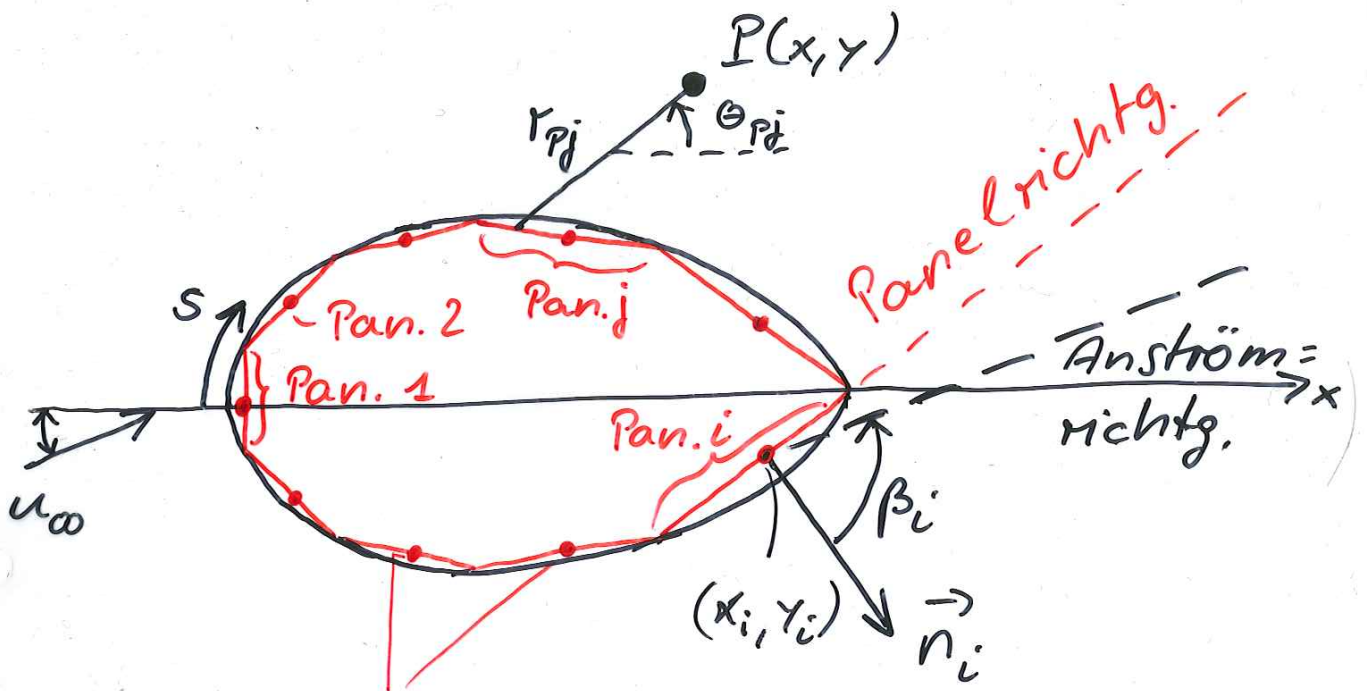 P(x,y)
r_Pj
Θ_Pj
Panelrichtg.
S
Pan. 2
Pan.j
Pan. 1
Anström=
richtg.
x
Pan.i
u_∞
β_i
(x_i, y_i)
n⃗_i